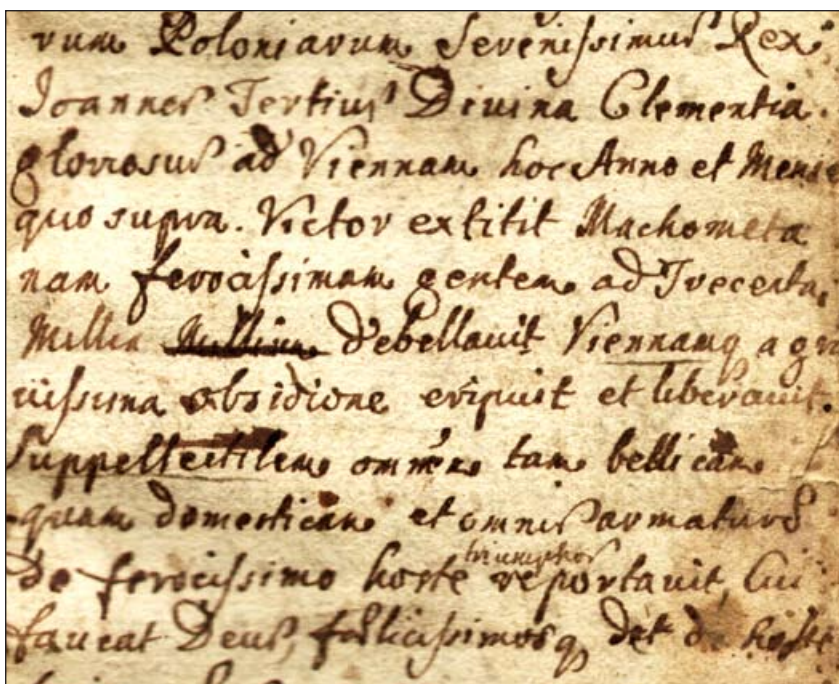 rum Poloniarum Serenissimus Rex
Joannes Tertius Divina Clementia
gloriosus ad Viennam hoc Anno et Mense
quo supra. Victor extitit Machometa
nam ferocissimam gentem ad Trecenta
Millia Millium debellauit Viennamq a gra
uissima obsidione eripuit et liberauit.
Suppellectilem omnem tam bellicam
quam domesticam et omnis armaturæ
triumphos
De ferocissimo hoste reportauit, Cui
faueat Deus, fœlicissimosq det de hoste